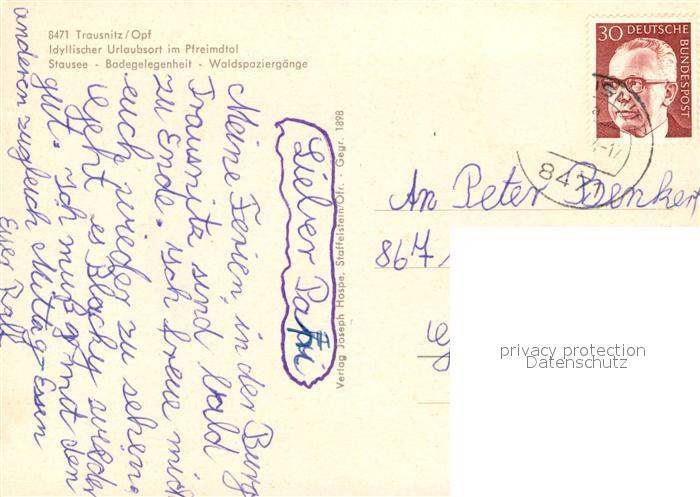 8471 Trausnitz/Opf
Idyllischer Urlaubsort im Pfreimdtal
Stausee - Badegelegenheit - Waldspaziergänge
Lieber Patri
Meine Ferien in der Burg
Trausnitz sind bald
zu Ende. Ich freue mich
euch wieder zu sehen.
Geht es Blacky wieder
gut. Ich muß grad mit den
anderen zugleich Mittag-Essen
Euer Ralf
Verlag Joseph Hospe, Staffelstein/Ofr. - Gegr. 1898
30 DEUTSCHE BUNDESPOST
8471
An Peter Benker
867
privacy protection
Datenschutz